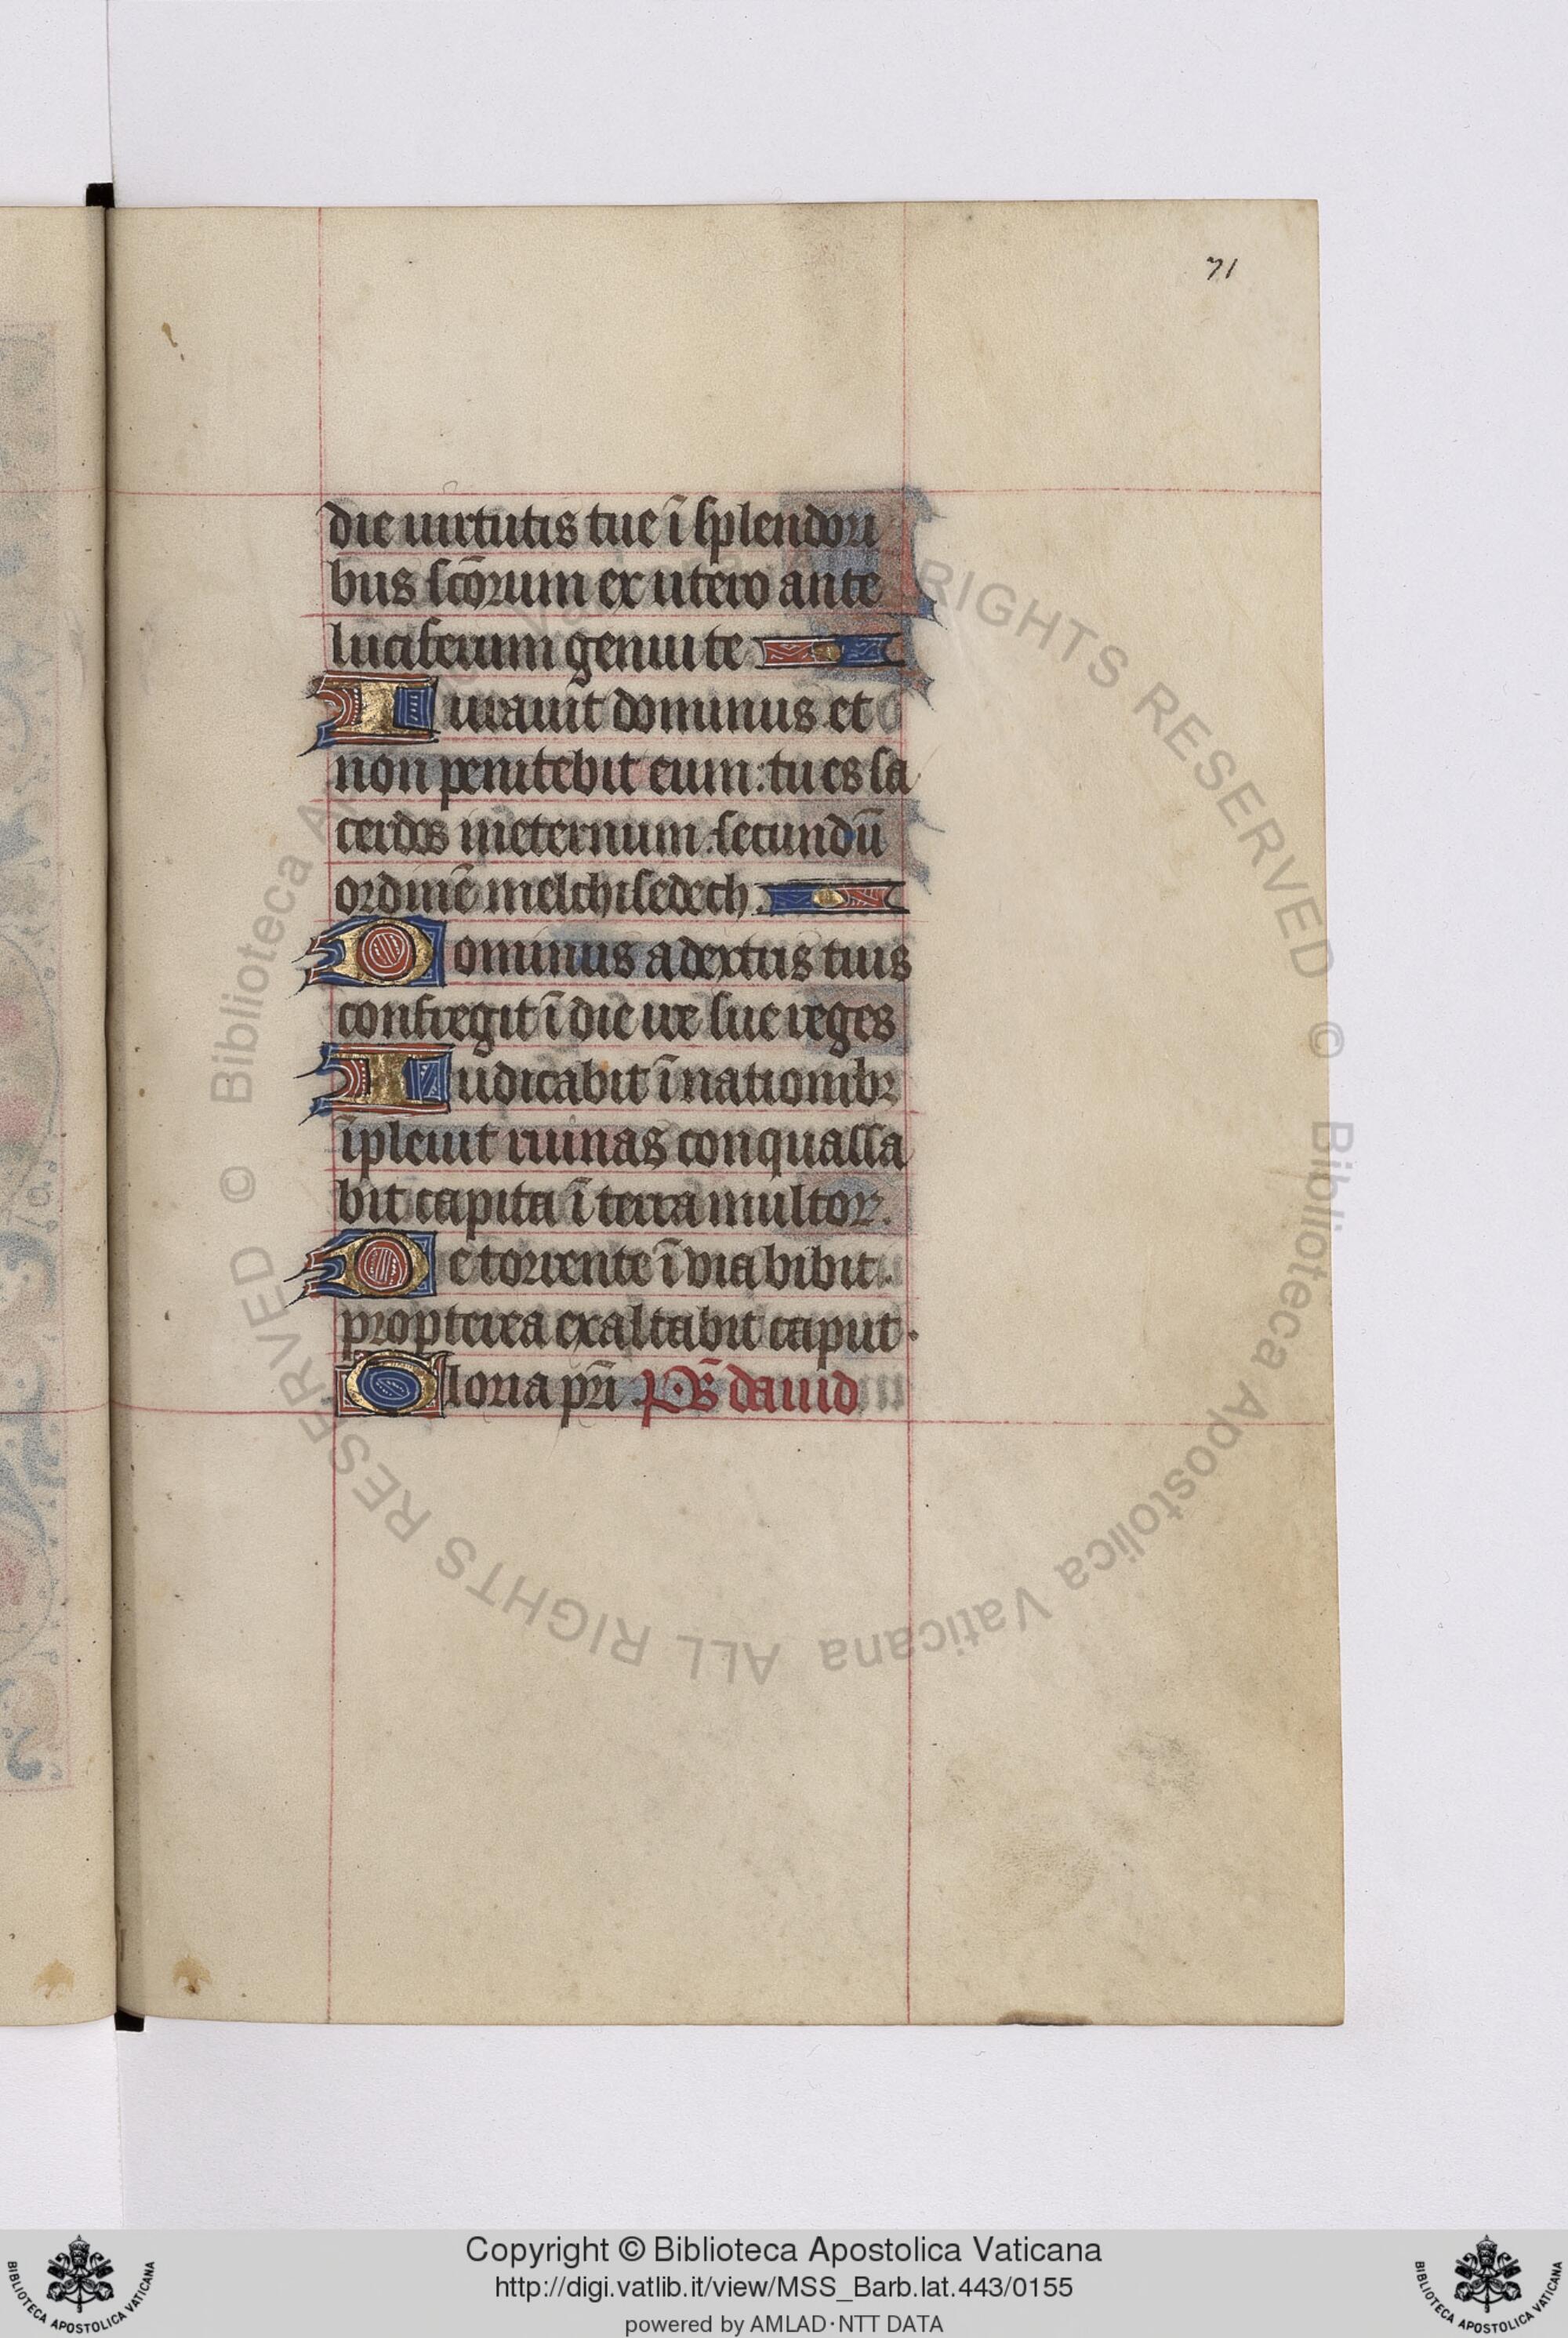 71
die uirtutis tue ī splendori
bus scōrum ex utero ante
luciferum genui te
Iurauit dominus et
non penitebit eum: tu es sa
cerdos ineternum. secundū
ordinē melchisedech.
Dominus a dextris tuis
confregit ī die ire sue reges
Iudicabit ī nationibꝫ
īpleuit ruinas conquassa
bit capita ī terra multoꝝ.
De torrente ī uia bibit.
propterea exaltabit caput.
Gloria pri̅. P̅s̅ dauid
© Biblioteca Apostolica Vaticana ALL RIGHTS RESERVED © Biblioteca Apostolica Vaticana ALL RIGHTS RESERVED
Copyright © Biblioteca Apostolica Vaticana
http://digi.vatlib.it/view/MSS_Barb.lat.443/0155
powered by AMLAD·NTT DATA
BIBLIOTECA APOSTOLICA VATICANA
BIBLIOTECA APOSTOLICA VATICANA